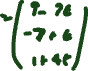 2 ( 9 - 76
-7 + 6
1 + 45 )